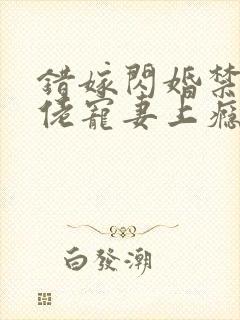 錯嫁閃婚禁
佬寵妻上癮
白發潮